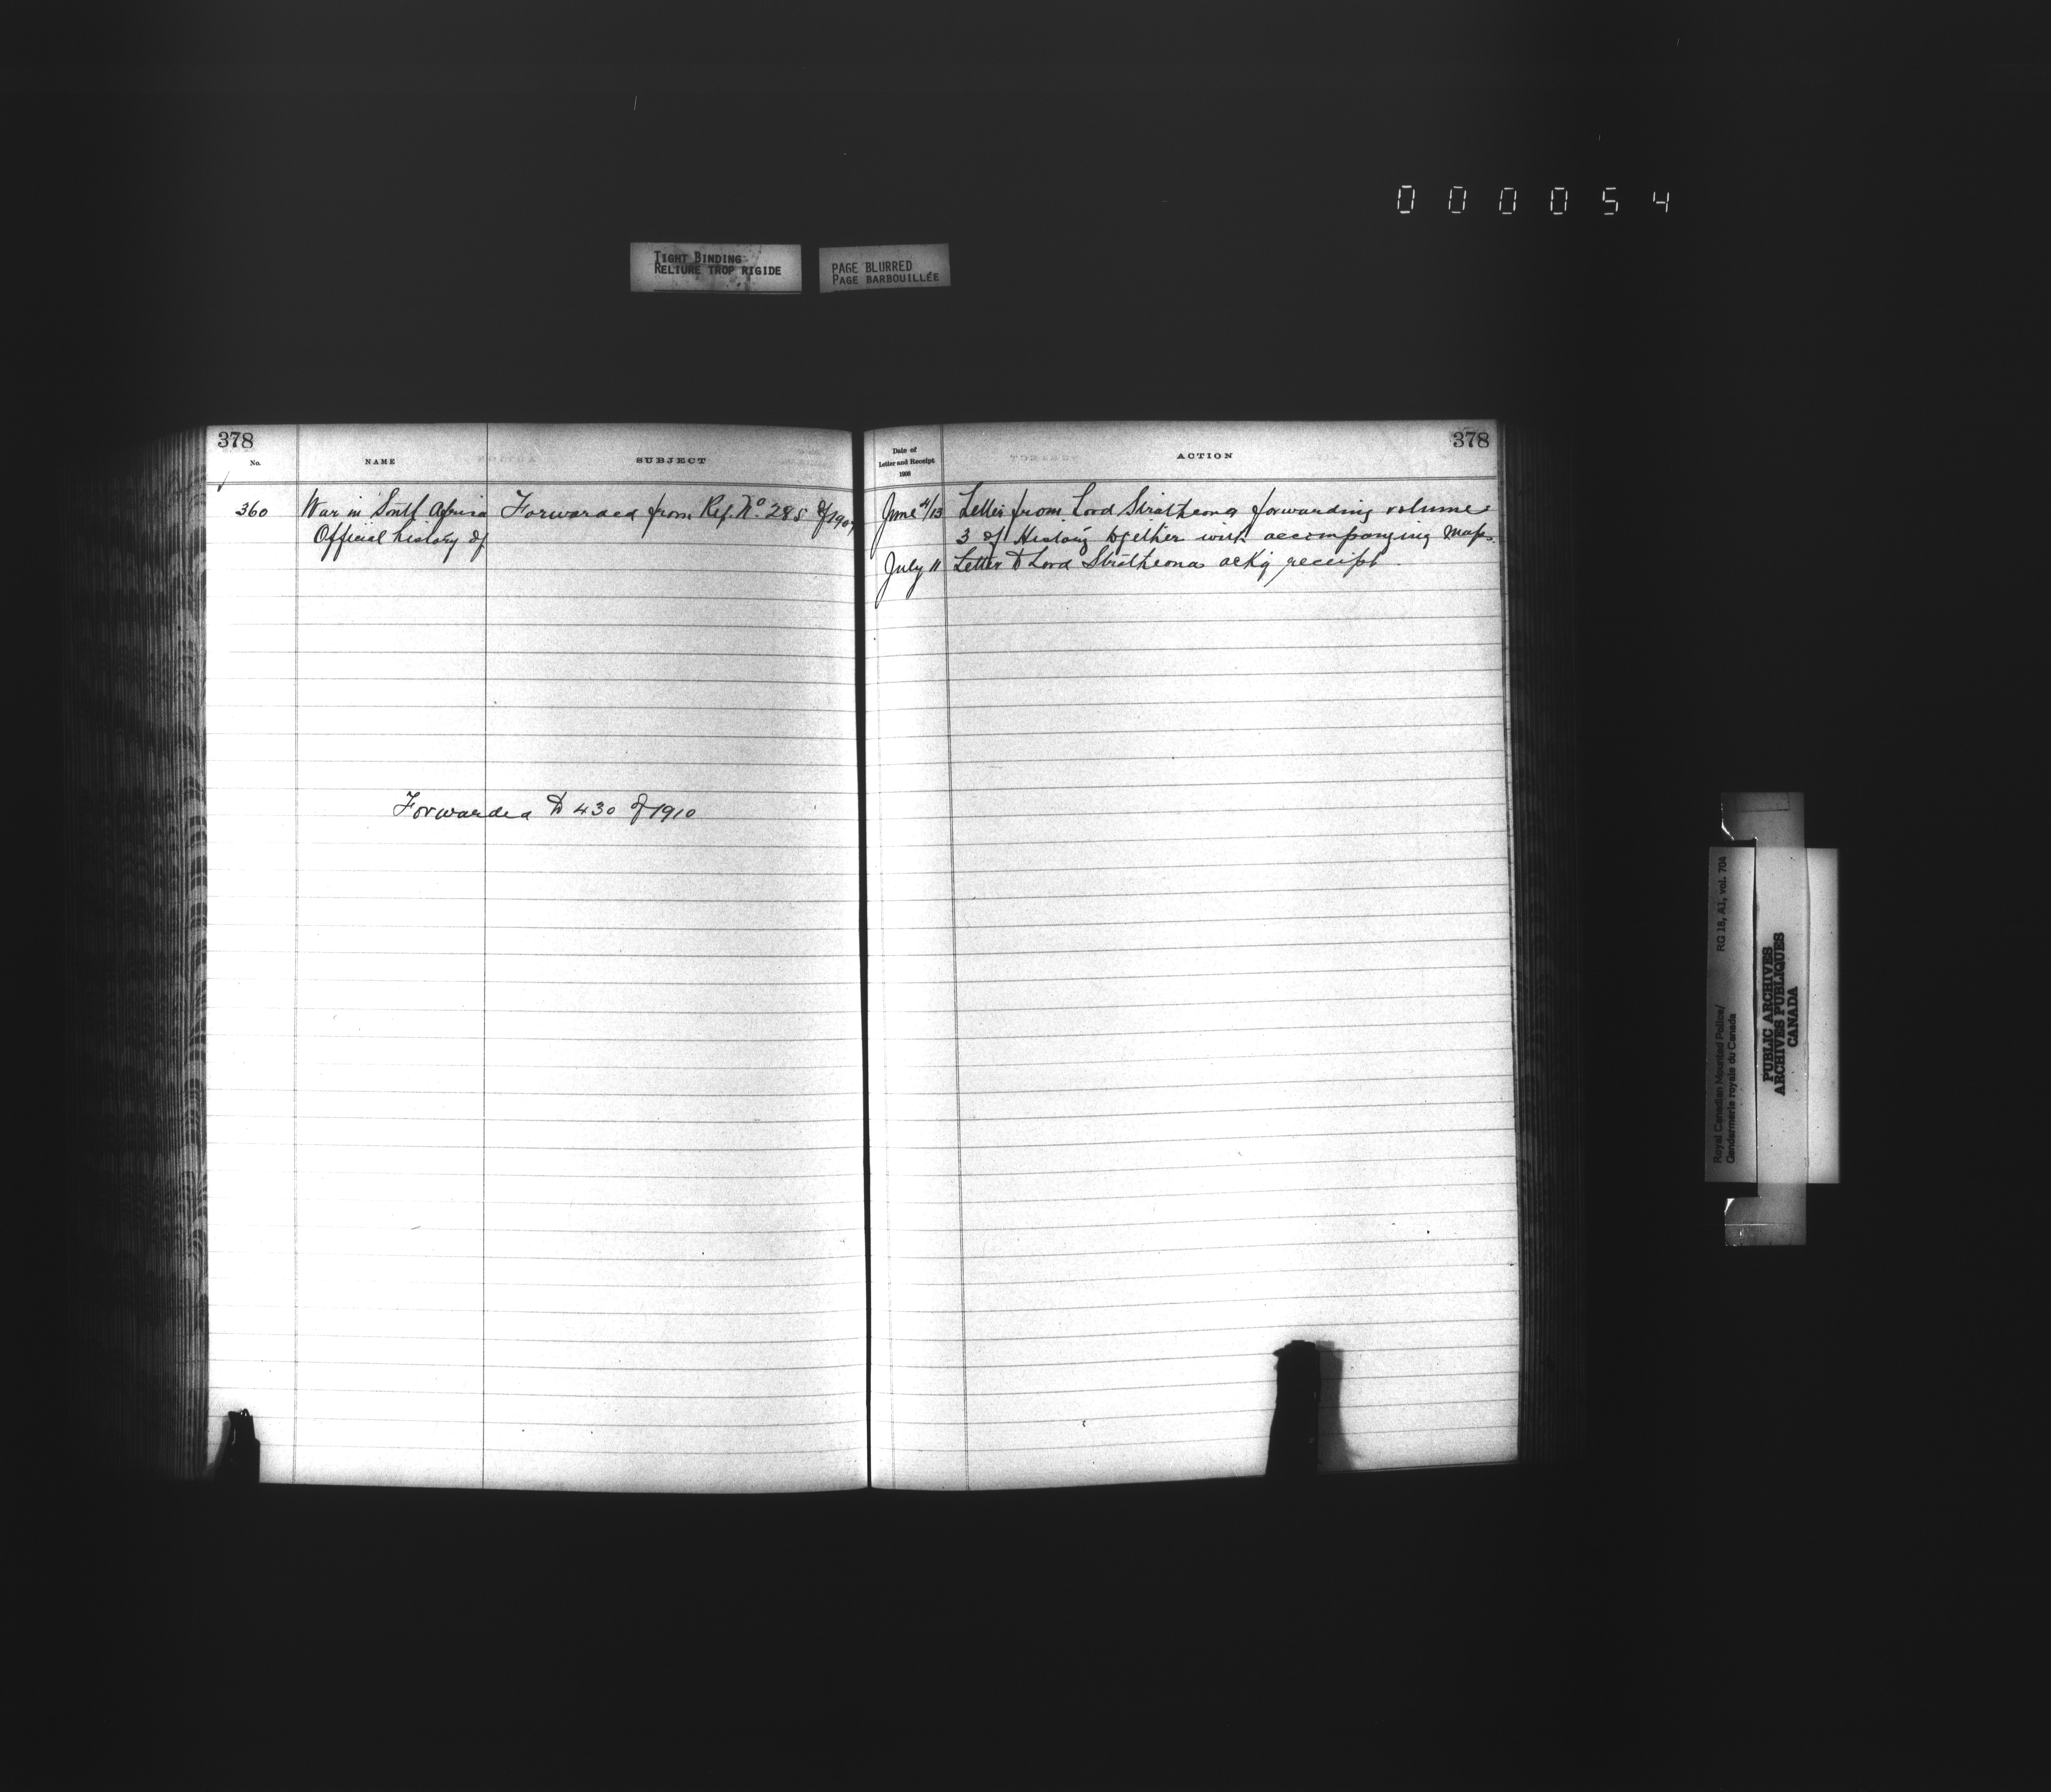 000054
TIGHT BINDING
RELIURE TROP RIGIDE
PAGE BLURRED
PAGE BARBOUILLÉE
378
No.
NAME
SUBJECT
360
War in South Africa
Official history of
Forwarded from Ref. No. 285 of 1907
Forwarded to 430 of 1910
378
Date of
Letter and Receipt
1908
ACTION
June 4/13 Letter from Lord Strathcona forwarding volume
3 of History together with accompanying maps.
July 11 Letter to Lord Strathcona ackg receipt.
Royal Canadian Mounted Police/ RG 18, A1, vol. 704
Gendarmerie royale du Canada
PUBLIC ARCHIVES
ARCHIVES PUBLIQUES
CANADA